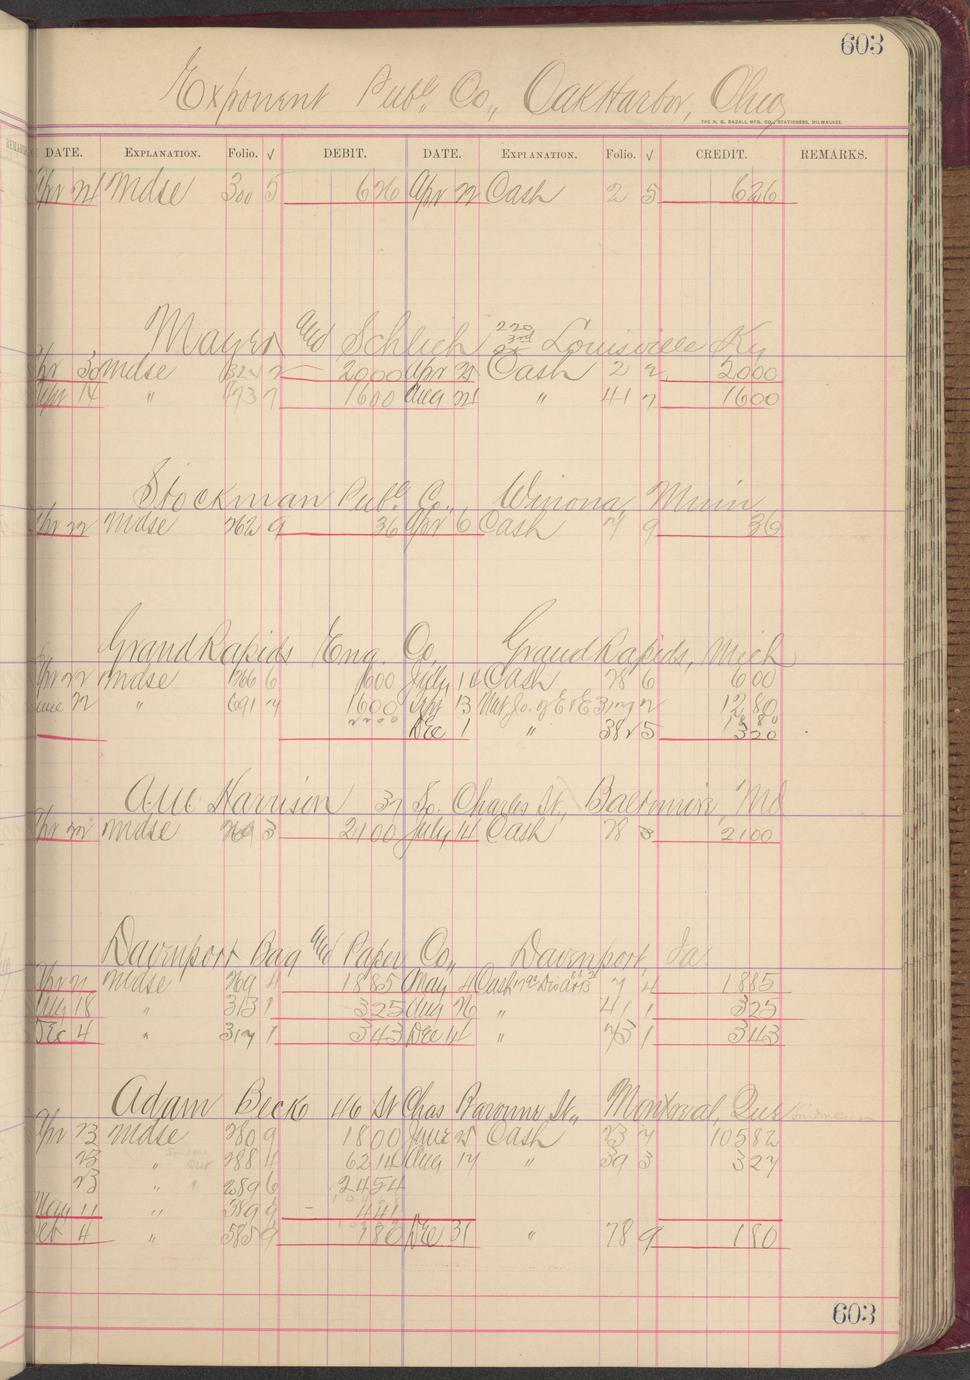 603
Exponent Publ. Co., Oak Harbor, Ohio
THE H. G. RAZALL MFG. CO., STATIONERS, MILWAUKEE
DATE. EXPLANATION. Folio. √ DEBIT. DATE. EXPLANATION. Folio. √ CREDIT. REMARKS.
Apr 21 Mdse 300 5 626 Apr 22 Cash 2 5 626
Mayer and Schlich 220 3rd St Louisville Ky
Apr 30 Mdse 324 2 2000 Apr 25 Cash 2 2 2000
14 " 473 7 1600 Aug 21 " 41 7 1600
Stockman Publ. Co., Winona, Minn
Apr 22 Mdse 262 9 36 Apr 6 Cash 9 36
Grand Rapids Eng. Co. Grand Rapids, Mich
Apr 22 Mdse 266 6 600 July 14 Cash 28 6 600
June 22 " 691 1600 13 1280
2200
Dec 1 " 382 5 320
A.W. Harrison 37 So. Charles St., Baltimore, Md
Apr 22 Mdse 269 3 2100 July 14 Cash 28 3 2100
Davenport Bag and Paper Co., Davenport, Ia
Apr 21 Mdse 269 4 1885 May 4 Cash 4 1885
Aug 18 " 313 1 325 Aug 26 " 41 1 325
Dec 4 " 317 1 343 Dec 14 " 73 1 343
Adam Beck 46 St Chas St., Montreal, Que
Apr 23 Mdse 280 9 1800 June 25 Cash 23 7 10582
23 " 288 4 6214 Aug 17 " 39 3 327
23 " 289 6 2454
May 11 " 589 9 441
4 " 585 9 180 Dec 31 " 78 9 180
603